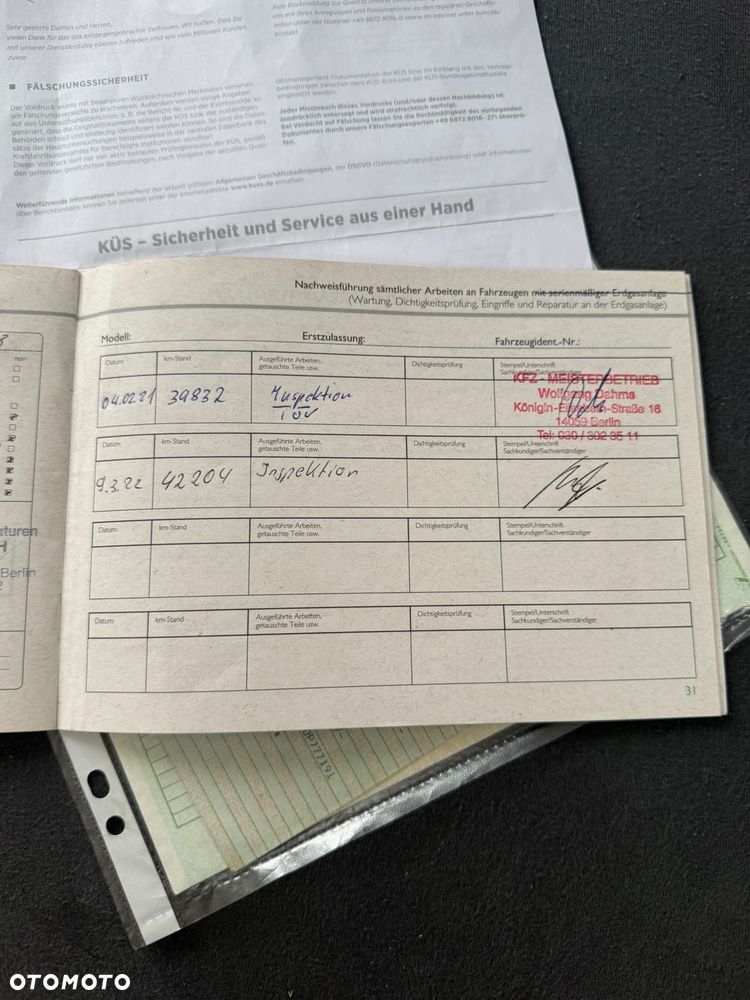 Sehr geehrte Damen und Herren,
vielen Dank für das uns entgegengebrachte Vertrauen. Wir hoffen, dass Sie
mit unserer Dienstleistung ebenso zufrieden sind wie viele Millionen Kunden
zuvor.
uns mit Ihren Anregungen und Reklamationen zu den regulären Geschäfts-
zeiten unter der Nummer +49 6872 9016-0 sowie im Internet unter kues.de/
kontakt
FÄLSCHUNGSSICHERHEIT
Der Vordruck wurde mit besonderen drucktechnischen Merkmalen versehen,
um Fälschungsversuche zu erschweren. Außerdem werden einige Angaben
auf den Untersuchungsberichten, z. B. die Bericht-Nr. und der Expresscode, so
generiert, dass die Originaldokumente seitens der KÜS bzw. der zuständigen
Behörden schnell und eindeutig identifiziert werden können. So sind die Daten-
sätze der Hauptuntersuchungen beispielsweise in der zentralen Datenbank des
Kraftfahrtbundesamtes für berechtigte Institutionen abrufbar.
Dieser Vordruck darf nur von aktiv betrauten Prüfingenieuren der KÜS, gemäß
den geltenden gesetzlichen Bestimmungen, nach Vorgabe der aktuellen Qual-
itätsmanagement-Dokumentation der KÜS bzw. im Einklang mit den Vertrags-
bedingungen zwischen dem KÜS-Büro und der KÜS-Bundesgeschäftsstelle
eingesetzt werden.
Jeder Missbrauch dieses Vordrucks (und/oder dessen Nachbildung) ist
ausdrücklich untersagt und wird strafrechtlich verfolgt.
Bei Verdacht auf Fälschung lassen Sie die Rechtmäßigkeit des vorliegenden
Dokumentes durch unsere Fälschungsexperten +49 6872 9016-271 überprü-
fen.
Weiterführende Informationen betreffend der aktuell gültigen Allgemeinen Geschäftsbedingungen, der DSGVO (Datenschutzgrundverordnung) oder Informationen
über Berichtsinhalte können Sie jederzeit unter der Internetadresse www.kues.de einsehen.
KÜS – Sicherheit und Service aus einer Hand
Nachweisführung sämtlicher Arbeiten an Fahrzeugen mit serienmäßiger Erdgasanlage
(Wartung, Dichtigkeitsprüfung, Eingriffe und Reparatur an der Erdgasanlage)
Modell: Erstzulassung: Fahrzeugident.-Nr.:
nein
Datum: km-Stand Ausgeführte Arbeiten, Dichtigkeitsprüfung Stempel/Unterschrift
getauschte Teile usw. Sachkundiger/Sachverständiger
04.02.21 39832 Inspektion
TÜV
KFZ - MEISTERBETRIEB
Wolfgang Dahms
Königin-Elisabeth-Straße 16
14059 Berlin
Tel: 030 / 302 35 11
Datum: km-Stand Ausgeführte Arbeiten, Dichtigkeitsprüfung Stempel/Unterschrift
getauschte Teile usw. Sachkundiger/Sachverständiger
9.3.22 42204 Inspektion
Datum: km-Stand Ausgeführte Arbeiten, Dichtigkeitsprüfung Stempel/Unterschrift
getauschte Teile usw. Sachkundiger/Sachverständiger
aturen
H
Berlin
2
Datum: km-Stand Ausgeführte Arbeiten, Dichtigkeitsprüfung Stempel/Unterschrift
getauschte Teile usw. Sachkundiger/Sachverständiger
31
OTOMOTO